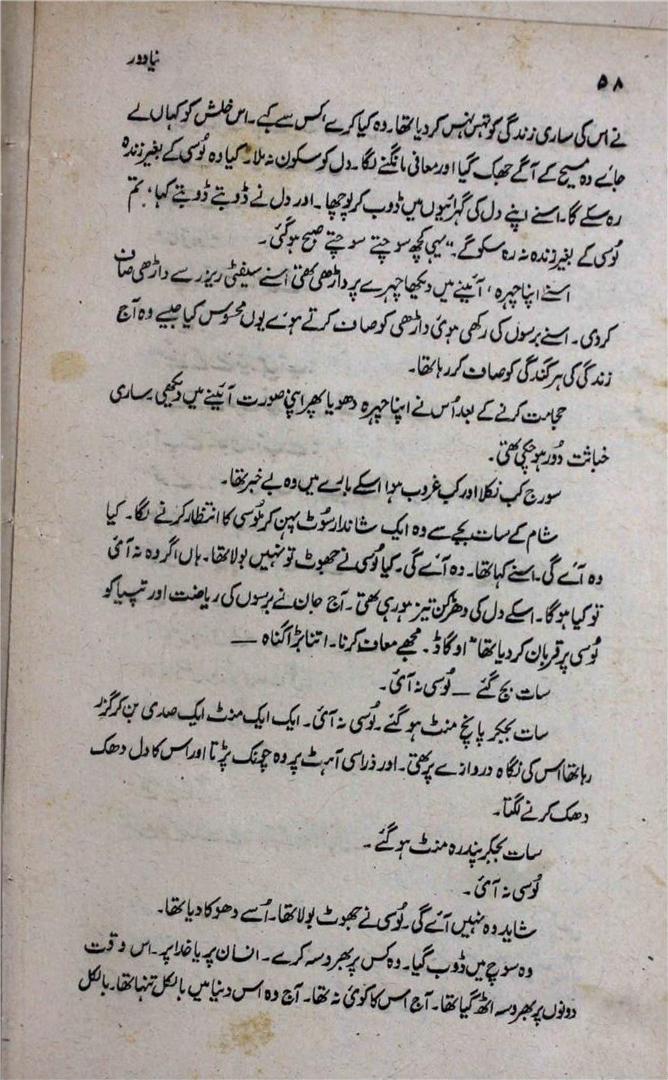 ۵۸
نیا دور
نے اس کی ساری زندگی کو تہس نہس کر دیا تھا۔ وہ کیا کرے، کس سے کہے۔ اس خلش کو کہاں لے
جائے وہ مسیح کے آگے جھک گیا اور معافی مانگنے لگا۔ دل کو سکون نہ ملا۔ کیا وہ لُوسی کے بغیر زندہ
رہ سکے گا۔ اسنے اپنے دل کی گہرائیوں میں ڈوب کر پوچھا۔ اور دل نے ڈوبتے ڈوبتے کہا، "تم
لُوسی کے بغیر زندہ نہ رہ سکو گے"۔ یہی کچھ سوچتے سوچتے صبح ہو گئی۔
اسنے اپنا چہرہ، آئینے میں دیکھا چہرے پر داڑھی تھی اسنے سیفٹی ریزر سے داڑھی صاف
کر دی۔ اسنے برسوں کی رکھی ہوئی داڑھی کو صاف کرتے ہوئے یوں محسوس کیا جیسے وہ آج
زندگی کی ہر گندگی کو صاف کر رہا تھا۔
حجامت کرنے کے بعد اُس نے اپنا چہرہ دھویا پھر اپنی صورت آئینے میں دیکھی۔ ساری
خباثت دُور ہو چکی تھی۔
سورج کب نکلا اور کب غروب ہوا اسکے بارے میں وہ بے خبر تھا۔
شام کے سات بجے سے وہ ایک شاندار سُوٹ پہن کر لُوسی کا انتظار کرنے لگا۔ کیا
وہ آئے گی۔ اسنے کہا تھا۔ وہ آئے گی۔ کیا لُوسی نے جھوٹ تو نہیں بولا تھا۔ ہاں اگر وہ نہ آئی
تو کیا ہوگا۔ اسکے دل کی دھڑکن تیز ہو رہی تھی۔ آج جان نے برسوں کی ریاضت اور تپسیا کو
لُوسی پر قربان کر دیا تھا "او گاڈ۔ مجھے معاف کرنا۔ اتنا بڑا گناہ —
سات بج گئے — لُوسی نہ آئی۔
سات بجکر پانچ منٹ ہو گئے۔ لُوسی نہ آئی۔ ایک ایک منٹ ایک صدی بن کر گزر
رہا تھا اس کی نگاہ دروازے پر تھی۔ اور ذرا سی آہٹ پر وہ چونک پڑتا اور اس کا دل دھک
دھک کرنے لگتا۔
سات بجکر پندرہ منٹ ہو گئے۔
لُوسی نہ آئی۔
شاید وہ نہیں آئے گی۔ لُوسی نے جھوٹ بولا تھا۔ اُسے دھوکا دیا تھا۔
وہ سوچ میں ڈوب گیا۔ وہ کس پر بھروسہ کرے۔ انسان پر یا خدا پر۔ اس وقت
دونوں پر بھروسہ اٹھ گیا تھا۔ آج اس کا کوئی نہ تھا۔ آج وہ اس دنیا میں بالکل تنہا تھا۔ بالکل